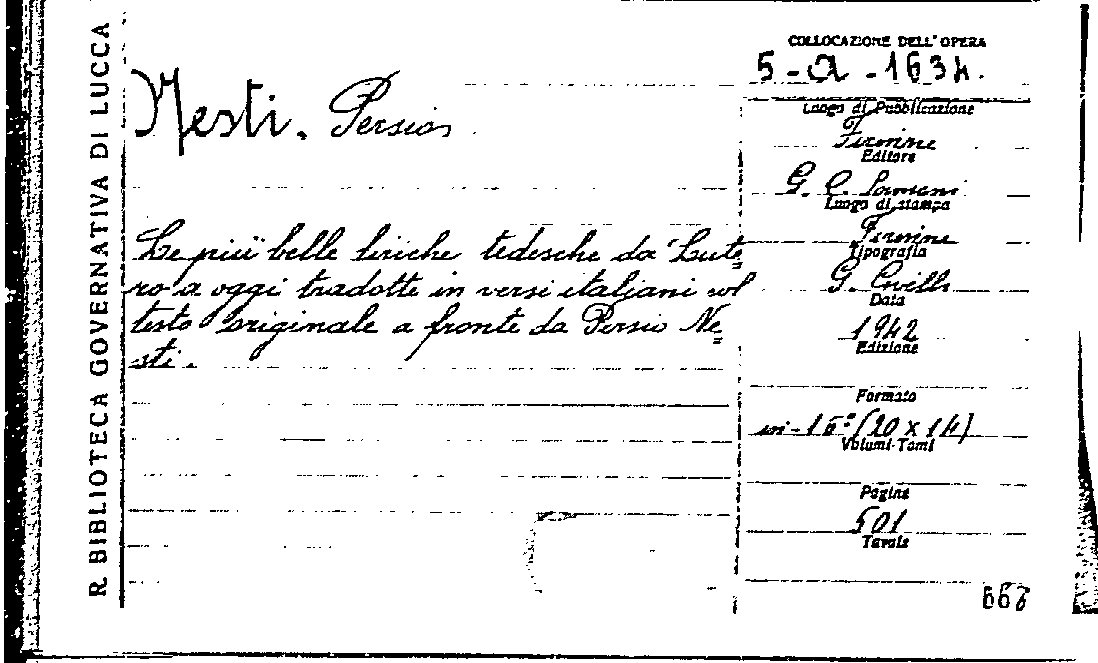 R BIBLIOTECA GOVERNATIVA DI LUCCA
Nesti. Persio
Le più belle liriche tedesche da Lute=
ro a oggi tradotte in versi italiani col
testo originale a fronte da Persio Ne=
sti.
COLLOCAZIONE DELL'OPERA
5-a-1634.
Luogo di Pubblicazione
Firenze
Editore
G. C. Sansoni
Luogo di stampa
Firenze
Tipografia
G. Civelli
Data
1942
Edizione
Formato
in-16° (20 x 14)
Volumi-Tomi
Pagine
501
Tavole